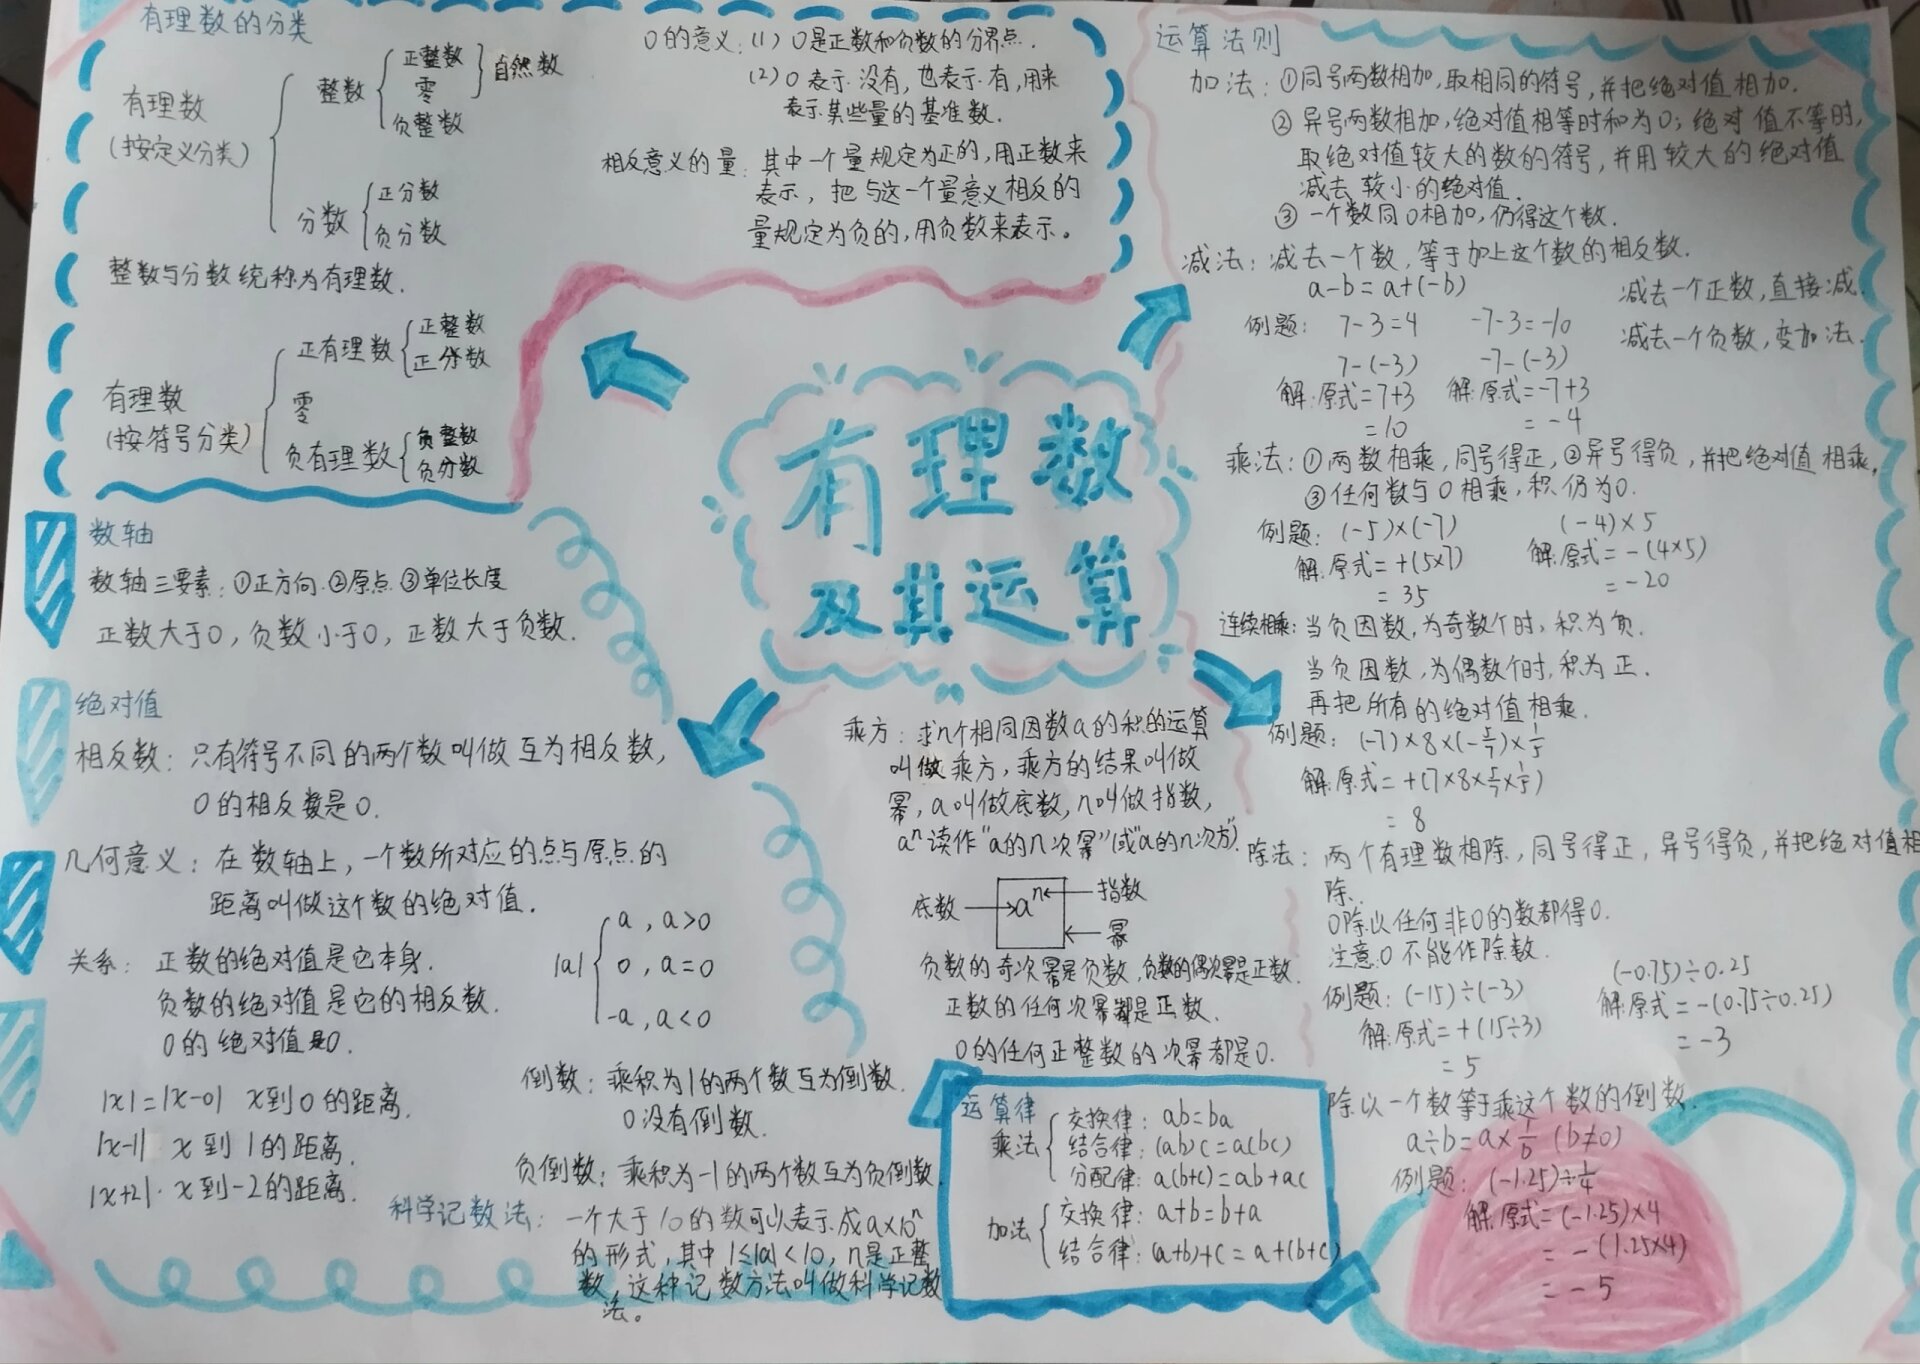 有理数的分类
有理数
(按定义分类)
整数
正整数
零
负整数
自然数
分数
正分数
负分数
整数与分数统称为有理数.
有理数
(按符号分类)
正有理数
正整数
正分数
零
负有理数
负整数
负分数
0的意义:(1) 0是正数和负数的分界点.
(2) 0表示没有,也表示有,用来
表示某些量的基准数.
相反意义的量:其中一个量规定为正的,用正数来
表示,把与这一个量意义相反的
量规定为负的,用负数来表示。
数轴
数轴三要素:①正方向.②原点.③单位长度
正数大于0,负数小于0,正数大于负数.
绝对值
相反数:只有符号不同的两个数叫做互为相反数,
0的相反数是0.
几何意义:在数轴上,一个数所对应的点与原点的
距离叫做这个数的绝对值.
关系:正数的绝对值是它本身.
负数的绝对值是它的相反数.
0的绝对值是0.
|a|
a,a>0
0,a=0
-a,a<0
|x|=|x-0| x到0的距离.
|x-1| x到1的距离.
|x+2|. x到-2的距离.
倒数:乘积为1的两个数互为倒数.
0没有倒数.
负倒数:乘积为-1的两个数互为负倒数.
科学记数法:一个大于10的数可以表示成a×10ⁿ
的形式,其中1≤|a|<10,n是正整
数,这种记数方法叫做科学记数
法。
有理数
及其运算
乘方:求n个相同因数a的积的运算
叫做乘方,乘方的结果叫做
幂,a叫做底数,n叫做指数,
aⁿ读作"a的n次幂"(或"a的n次方").
底数 aⁿ 指数
幂
负数的奇次幂是负数,负数的偶次幂是正数.
正数的任何次幂都是正数.
0的任何正整数的次幂都是0.
运算律
乘法
交换律:ab=ba
结合律:(ab)c=a(bc)
分配律:a(b+c)=ab+ac
加法
交换律:a+b=b+a
结合律:(a+b)+c=a+(b+c)
运算法则
加法:①同号两数相加,取相同的符号,并把绝对值相加.
②异号两数相加,绝对值相等时和为0;绝对值不等时,
取绝对值较大的数的符号,并用较大的绝对值
减去较小的绝对值.
③一个数同0相加,仍得这个数.
减法:减去一个数,等于加上这个数的相反数.
a-b=a+(-b)
减去一个正数,直接减.
减去一个负数,变加法.
例题: 7-3=4 -7-3=-10
7-(-3) -7-(-3)
解:原式=7+3 解:原式=-7+3
=10 =-4
乘法:①两数相乘,同号得正,②异号得负,并把绝对值相乘.
③任何数与0相乘,积仍为0.
例题:(-5)×(-7) (-4)×5
解:原式=+(5×7) 解:原式=-(4×5)
=35 =-20
连续相乘:当负因数,为奇数个时,积为负.
当负因数,为偶数个时,积为正.
再把所有的绝对值相乘.
例题:(-7)×8×(-5/7)×1/5
解:原式=+(7×8×5/7×1/5)
=8
除法:两个有理数相除,同号得正,异号得负,并把绝对值相
除.
0除以任何非0的数都得0.
注意:0不能作除数.
例题:(-15)÷(-3) (-0.75)÷0.25
解:原式=+(15÷3) 解:原式=-(0.75÷0.25)
=5 =-3
除以一个数等于乘这个数的倒数.
a÷b=a×1/b (b≠0)
例题:(-1.25)÷1/4
解:原式=(-1.25)×4
=-(1.25×4)
=-5